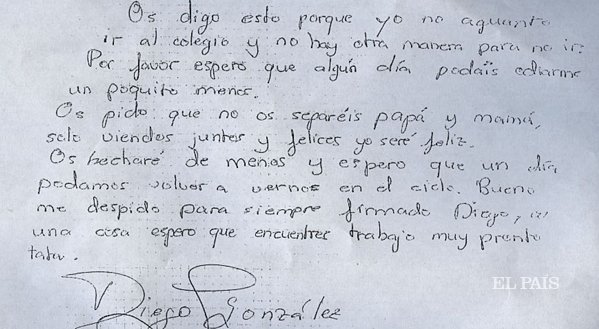 Os digo esto porque yo no aguanto
ir al colegio y no hay otra manera para no ir.
Por favor espero que algún día podáis odiarme
un poquito menos.
Os pido que no os separéis papá y mamá,
solo viendos juntos y felices yo seré feliz.
Os hecharé de menos y espero que un día
podamos volver a vernos en el cielo. Bueno
me despido para siempre firmado Diego,
una cosa espero que encuentres trabajo muy pronto
tata.
Diego González
EL PAÍS